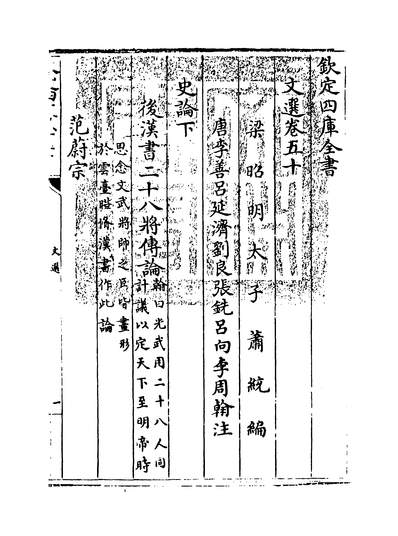 欽定四庫全書
文選卷五十
梁昭明太子蕭統編
唐李善呂延濟劉良張銑呂向李周翰注
史論下
後漢書二十八將傳論
翰曰光武用二十八人同
計議以定天下至明帝時
思念文武將帥之臣皆畫形
於雲臺
漢書作此論
范蔚宗
文選
一